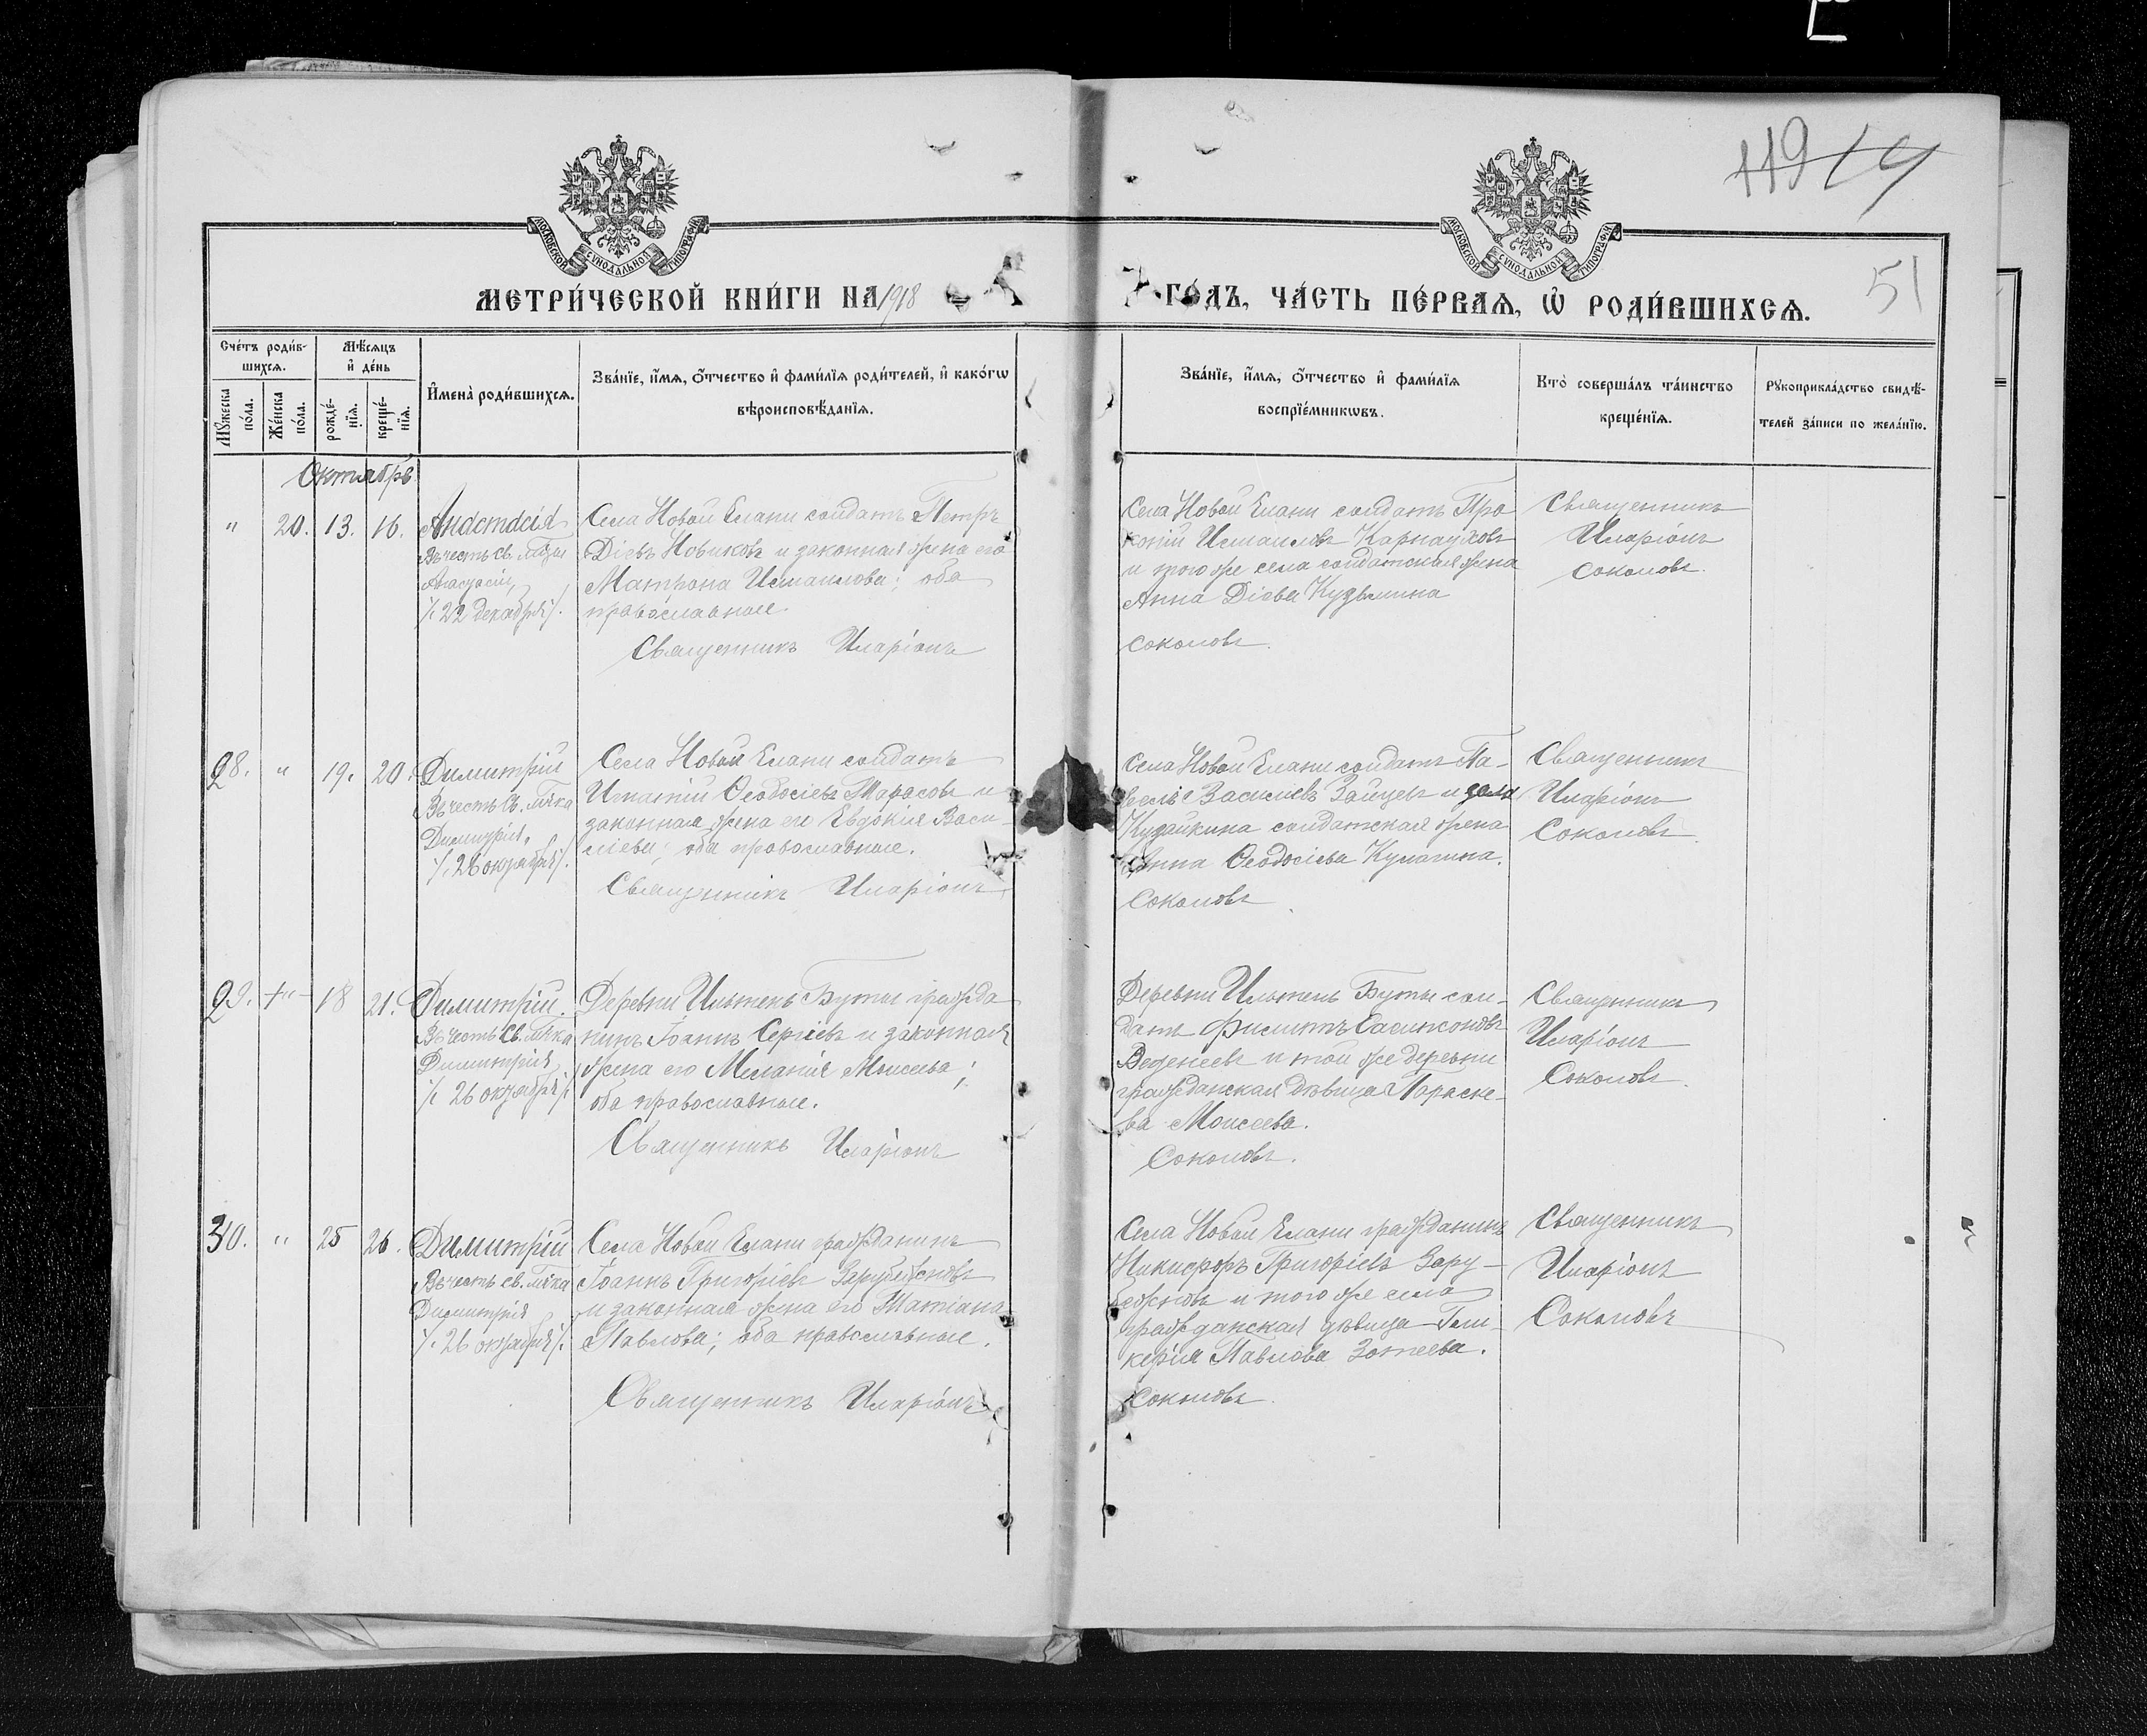 119 14
51
МОСКОВСКОЙ СѴНОДАЛЬНОЙ ТИПОГРАФІИ
МОСКОВСКОЙ СѴНОДАЛЬНОЙ ТИПОГРАФІИ
МЕТРИ́ЧЕСКОЙ КНИ́ГИ НА 1918
ГО́ДЪ, ЧА́СТЬ ПЕ́РВАЯ, Ѡ҆ РОДИ́ВШИХСЯ.
Сче́тъ роди́в-
шихся.
Мꙋ́жеска
по́ла.
Же́нска
по́ла.
Мѣ́сяцъ
и҆ де́нь
рожде́-
нїя.
креще́-
нїя.
И҆мена̀ роди́вшихся.
Зва́нїе, и҆́мя, ѻ҆́тчество и҆ фами́лїя роди́телей, и҆ како́гѡ
вѣроисповѣ́данїя.
Зва́нїе, и҆́мя, ѻ҆́тчество и҆ фами́лїя
воспрїе́мникѡвъ.
Кто̀ соверша́лъ та́инство
креще́нїя.
Рꙋкоприкла́дство свидѣ́-
телей за́писи по жела́нїю.
Октябрь
" 20. 13. 16. Анастасія
Въ честь св. м҃цы
Анастасіи,
/: 22 декабря :/.
Села Новой Елани солдатъ Петръ
Діевъ Новиковъ и законная жена его
Матрона Исмаилова; оба
православные.
Священникъ Иларіонъ
Села Новой Елани солдатъ Про
копій Исмаиловъ Карнауховъ
и того же села солдатская жена
Анна Діева Кузьмина
Соколовъ.
Священникъ
Иларіонъ
Соколовъ.
28. " 19. 20. Димитрій
Въ честь св. м҃ка
Димитрія,
/: 26 октября :/.
Села Новой Елани солдатъ
Игнатій Ѳеодосіевъ Тарасовъ и
законная жена его Евдокія Васи-
ліева; оба православные.
Священникъ Иларіонъ
Села Новой Елани солдатъ Па-
велъ Василіевъ Зайцевъ и села
солдатская жена
Анна Ѳеодосіева Кулагина.
Соколовъ
Священникъ
Иларіонъ
Соколовъ.
29. " 18 21. Димитрій.
Въ честь св. м҃ка
Димитрія
/: 26 октября :/.
Деревни Ильмень Буты гражда
нинъ Іоаннъ Сергіевъ и законная
жена его Меланія Моисеева;
оба православные.
Священникъ Иларіонъ
Деревни Ильмень Буты сол-
датъ Филиппъ
Веденеевъ и той же деревни
гражданская дѣвица Параске-
ва Моисеева.
Соколовъ.
Священникъ
Иларіонъ
Соколовъ.
30. " 25 26. Димитрій
Въ честь св. м҃ка
Димитрія
/: 26 октября :/.
Села Новой Елани гражданинъ
Іоаннъ Григоріевъ Зарубежновъ
и законная жена его Татіана
Павлова; оба православные.
Священникъ Иларіонъ
Села Новой Елани гражданинъ
Никифоръ Григоріевъ Зару-
бежновъ и того же села
гражданская дѣвица Гли-
керія Павлова Зотеева.
Соколовъ.
Священникъ
Иларіонъ
Соколовъ